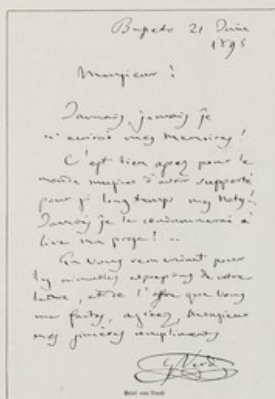 Busseto 21 Juin
1895
Monsieur!
Jamais, jamais je
n'écrirai mes memoires!
C'est bien assez pour le
monde musical d'avoir supporté
pour si longtemps mes notes!
Jamais je le condamnerai à
lire ma prose! ..
En vous remerciant pour
les aimables expressions de votre
lettre, et de l'offre que vous
me faites, agréez, Monsieur
mes sincères compliments
G Verdi
Brief von Verdi